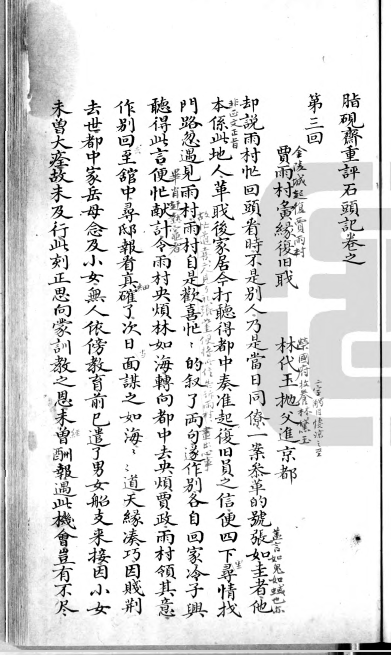 脂硯齋重評石頭記卷之
第三回
金陵城起復賈雨村
賈雨村夤緣復旧职
榮國府收養林黛玉
林代玉抛父進京都
却說雨村忙回頭看時不是別人乃是當日同僚一案叅革的號張如圭者他
蓋言如鬼如蜮也亦
非正文正旨
本係此地人革职後家居今打聽得都中奏准起復旧員之信便四下尋情找
門路忽遇見雨村雨村自是歡喜忙〻的叙了兩句遂作別各自回家冷子興
聽得此言便忙献計令雨村央煩林如海轉向都中去央煩賈政雨村領其意
作別回至舘中尋邸報看真確了次日面謀之如海〻〻道天緣凑巧因賤荆
去世都中家岳母念及小女無人依傍教育前已遣了男女船支來接因小女
未曾大痊故未及行此刻正思向蒙訓教之恩未曾酬報遇此機會豈有不尽